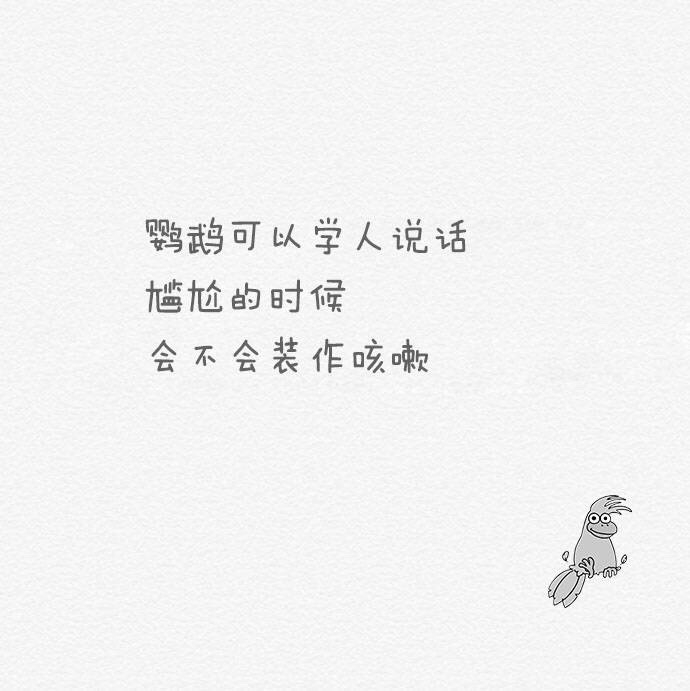 鹦鹉可以学人说话
尴尬的时候
会不会装作咳嗽